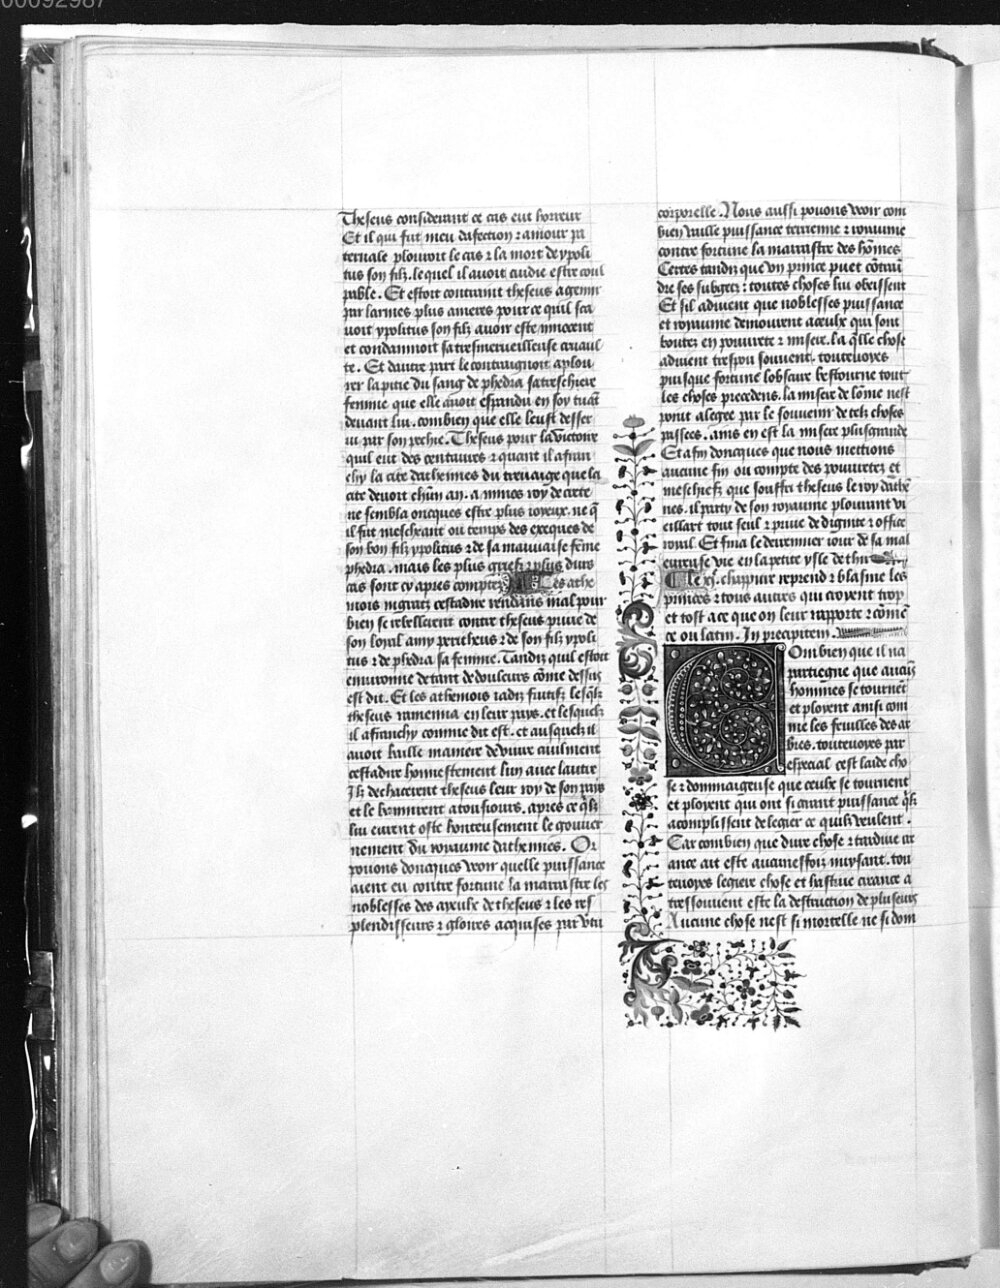 00092987
Theseus considerant ce cas eut horreur
Et il qui fut meu daffection ⁊ amour pa
ternale plouroit le cas ⁊ la mort de ypoli
tus son filz. lequel il auoit cuidie estre coul
pable. Et estoit contraint theseus a gemir
par larmes plus ameres pour ce quil sca
uoit ypolitus son filz auoir este innocent
et condamnoit sa tresmerueilleuse cruaul
te. Et dautre part le contraignoit a plou
rer la pitie du sang de phedra sa treschiere
femme que elle auoit espandu en soy tuāt
deuant lui. combien que elle leust desser
ui par son pechie. Theseus pour la victoire
quil eut des centaures ⁊ quant il afran
chy la cite dathennes du treuaige que la
cite deuoit chūn an. a minos roy de crete
ne sembla oncques estre plus ioyeux. ne q̄
il fut meschant ou temps des exeques de
son bon filz ypolitus ⁊ de sa mauuaise fēme
phedra. mais les plus griefz ⁊ plus durs
cas sont cy apres comptez Les athe
niois ingratz cestadire rendans mal pour
bien se rebellerent contre theseus priue de
son loyal amy peritheus ⁊ de son filz ypoli
tus ⁊ de phedra sa femme. Tandiz quil estoit
enuironne de tant de douleurs cōme dessus
est dit. Et les atheniois iadiz fuitifz lesq̄lz
theseus ramenna en leur pays. et lesquelz
il afranchy comme dit est. et ausquelz il
auoit baille maniere de viure ciuilment
cestadire honnestement lun auec lautre
Ilz dechacerent theseus leur roy de son pays
et le bannirent a tousiours. apres ce q̄lz
lui eurent oste honteusement le gouuer
nement du royaume dathennes. Or
pouons doncques veoir quelle puissance
aient eu contre fortune la marrastre les
noblesses des ayeulx de theseus ⁊ les res
plendisseurs ⁊ gloires acquises par vtu
corporelle. Nous aussi pouons veoir com
bien vaille puissance terrienne ⁊ royaume
contre fortune la marrastre des hōmes
Certes tandiz que vn prince puet cōtrai
dre ses subgetz ⁊ toutes choses lui obeissent
Et sil aduient que noblesses puissance
et royaume demourent a ceulx qui sont
boutez en pourete ⁊ misere. la q̄lle chose
aduient trespou souuent. toutesuoyes
puisque fortune lobscure bestourne tout
les choses precedens. la misere de lōme nest
point alegee par le souuenir de telz choses
passees. ains en est la misere plus grande
Et afin doncques que nous mettions
aucune fin ou compte des pouretez et
meschiefz que souffri theseus le roy dathē
nes. il party de son royaume plourant vi
eillart tout seul ⁊ priue de dignite ⁊ office
royal. Et fina le derrenier iour de sa mal
eureuse vie en la petite ysle de
Le xjᵉ. chappitre reprend ⁊ blasme les
princes ⁊ tous autres qui croyent trop
et tost a ce que on leur rapporte ⁊ cōmē
ce ou latin. In precipitem.
Combien que il na
partiegne que aucūs
hommes se tournēt
et ployent ainsi com
me les feuilles des ar
bres. toutesuoyes par
especial cest laide cho
se ⁊ dommaigeuse que ceulx se tournent
et ployent qui ont si grant puissance q̄lz
acomplissent de legier ce quilz veulent.
Car combien que dure chose ⁊ tardiue cre
ance ait este aucunesfoiz nuysant. tou
tesuoyes legiere chose et hastiue creance a
tressouuent este la destruction de pluseurs
Aucune chose nest si mortelle ne si dom